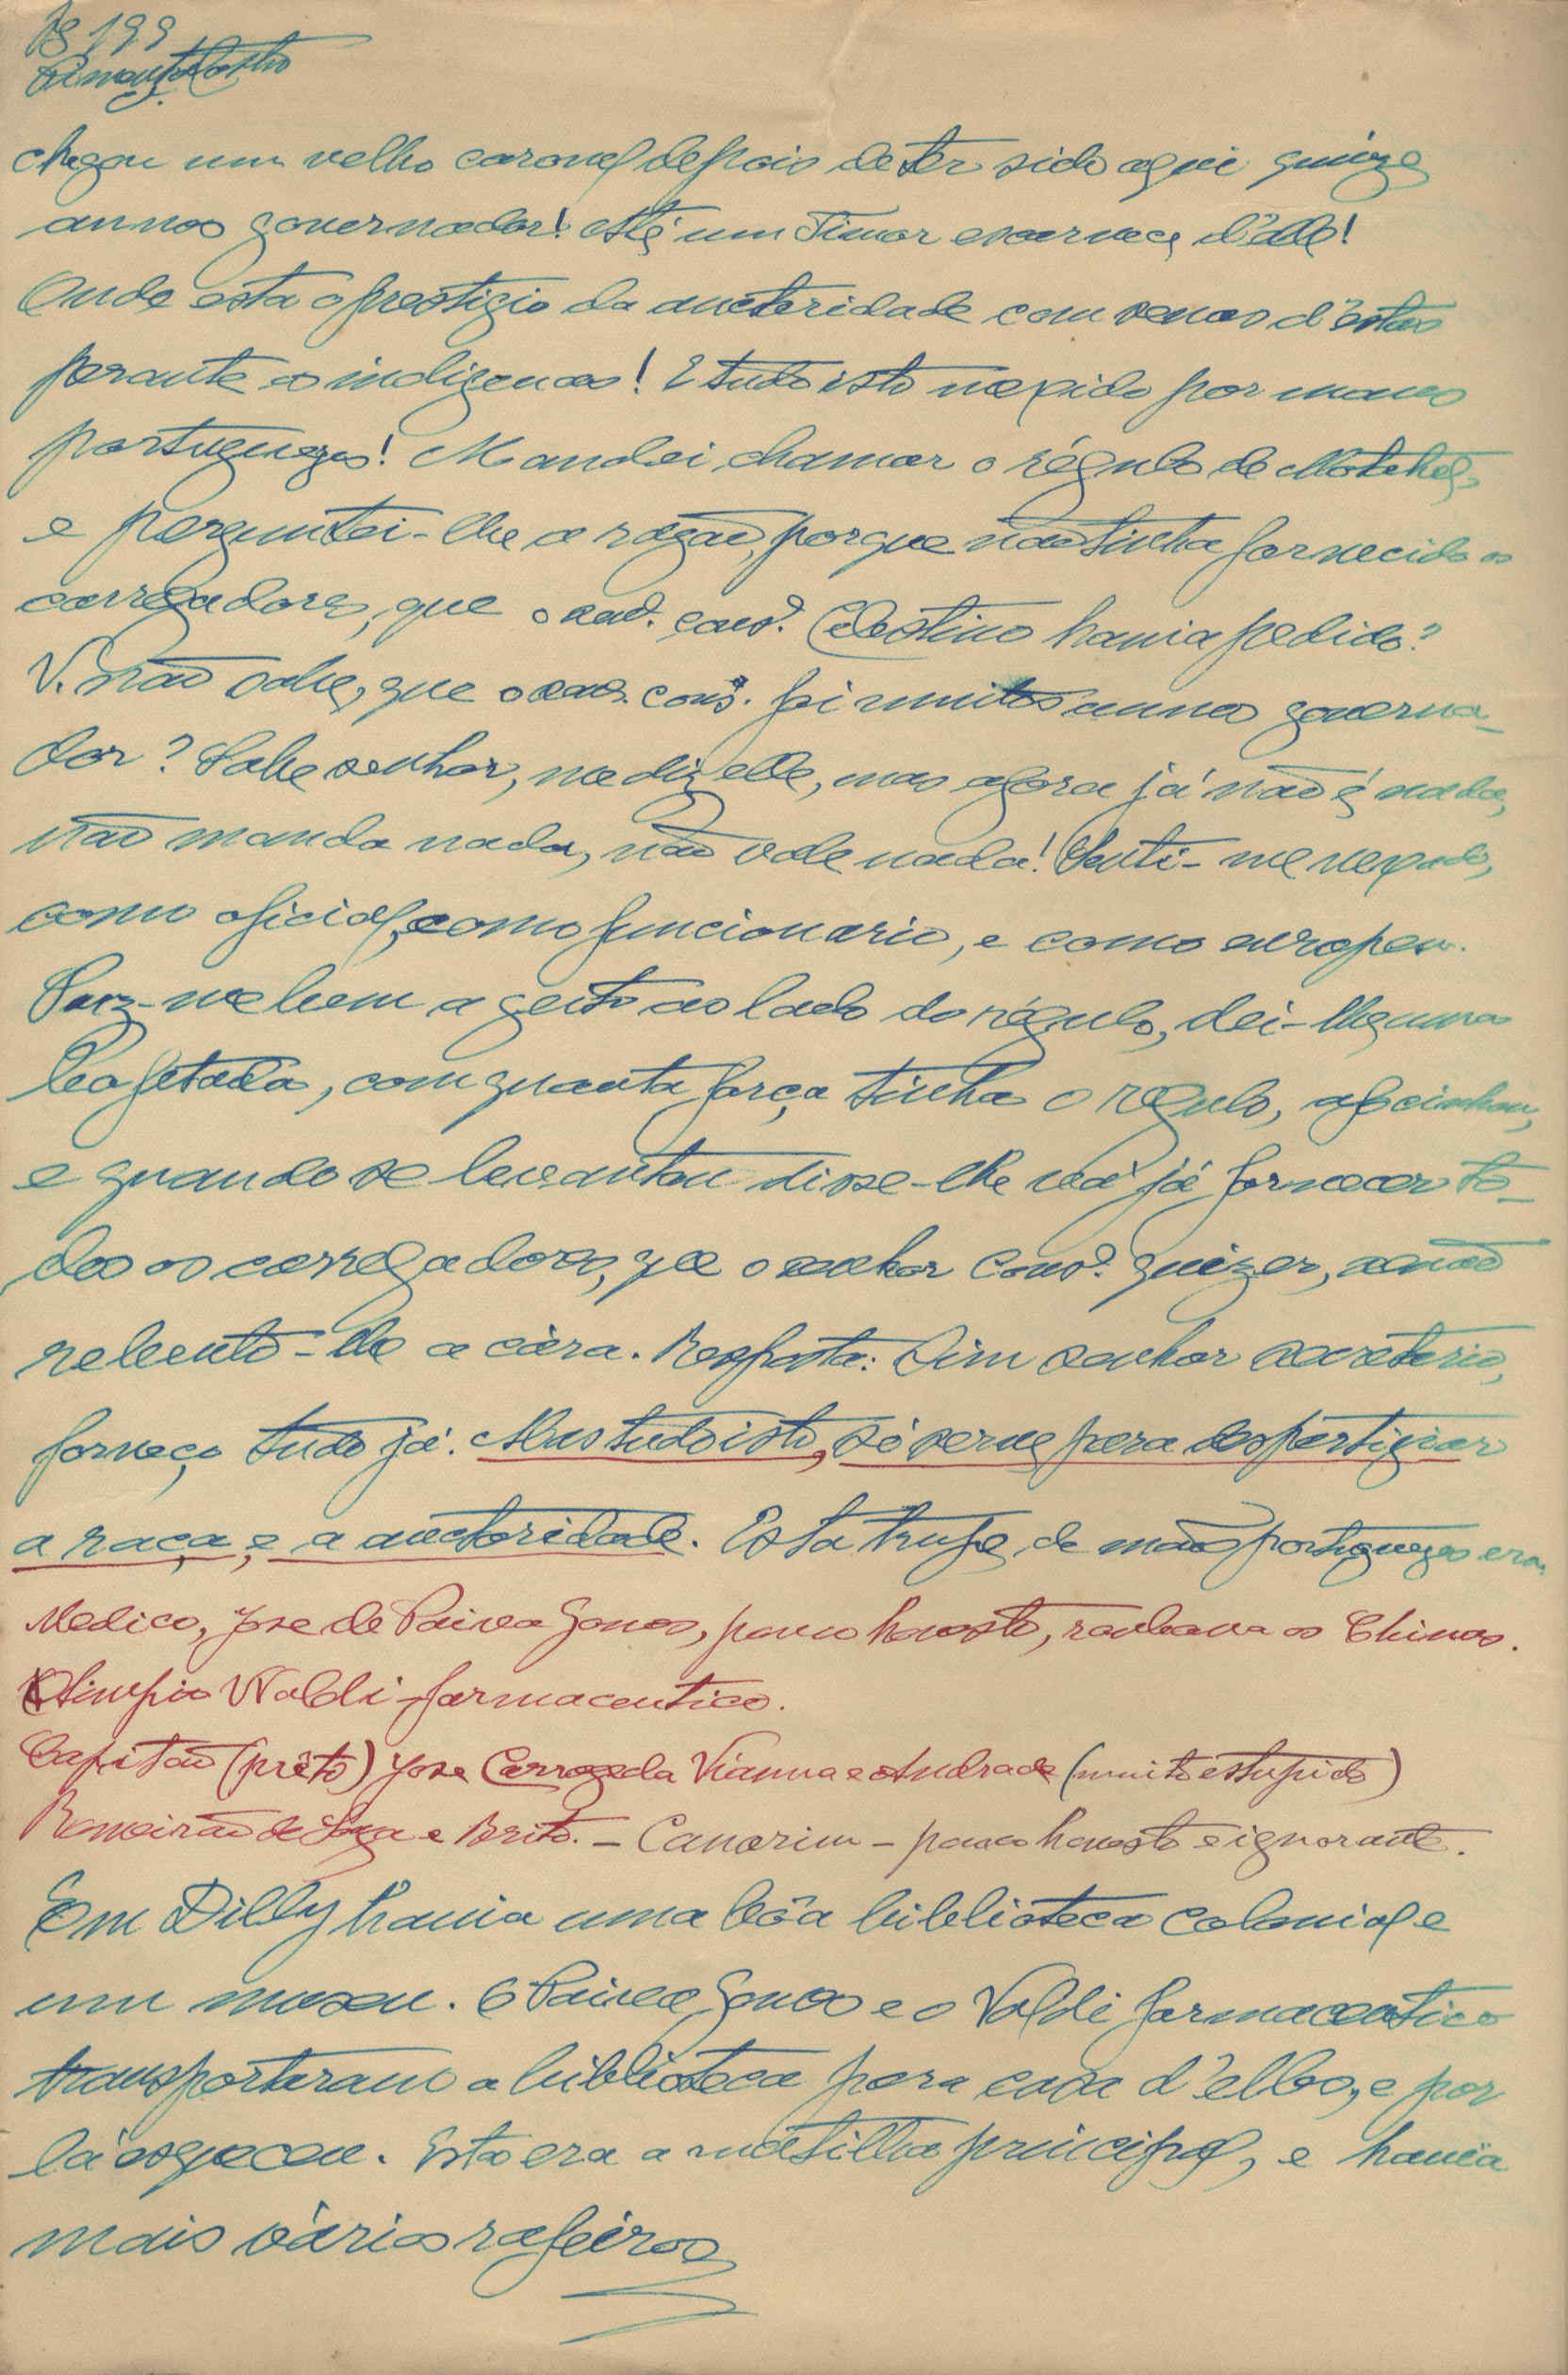 199
Pimenta Castro
chegou um velho coronel depois de ter sido aqui quinze
annos governador! Até um Timor escarnece d'elle!
Onde está o prestigio da auctoridade com scenas d'estas
perante os indigenas! E tudo isto mexido por maus
portuguezes! Mandei chamar o régulo de Motahel,
e perguntei-lhe a razão, porque não tinha fornecido os
carregadores, que o sen.r cons.o Celestino havia pedido?
V. não sabe, que o sen.r cons.o foi muitos annos governa-
dor? Sabe senhor, me diz elle, mas agora já não é nada,
não manda nada, não vale nada! Senti-me vexado,
como oficial, como funcionario, e como europeu.
Puz-me bem a geito ao lado do régulo, dei-lhe uma
bofetada, com quanta força tinha o régulo, afocinhou,
e quando se levantou disse-lhe vá já fornecer to-
dos os carregadores, que o senhor cons.o quizer, senão
rebento-lhe a cára. Resposta: Sim senhor secretario,
forneço tudo já. Mas tudo isto, só serve para despertigiar
a raça, e a auctoridade. Esta trupe de maus portuguezes era,
Medico, Jose de Paiva Gomes, pouco honesto, roubava os Chinas.
Olimpio Valdi farmaceutico.
Capitão (prêto) Jose Carrazeda Vianna e Andrade (muito estupido)
de Souza e Brito. - Canarim - pouco honesto e ignorante.
Em Dilly havia uma bôa biblioteca colonial e
um museu. O Paiva Gomes e o Valdi farmaceutico
transportaram a biblioteca para casa d'elles, e por
lá esqueceu. Esta era a matilha principal, e havia
mais vários rafeiros